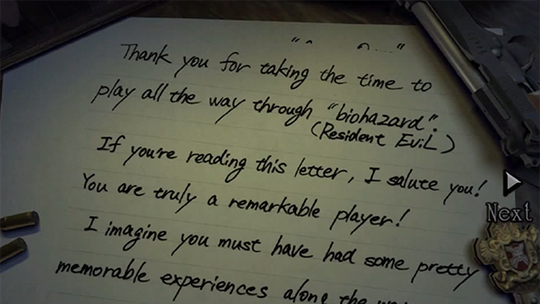 Thank you for taking the time to
play all the way through "biohazard".
(Resident Evil)
If you're reading this letter, I salute you!
You are truly a remarkable player!
I imagine you must have had some pretty
memorable experiences along the
Next